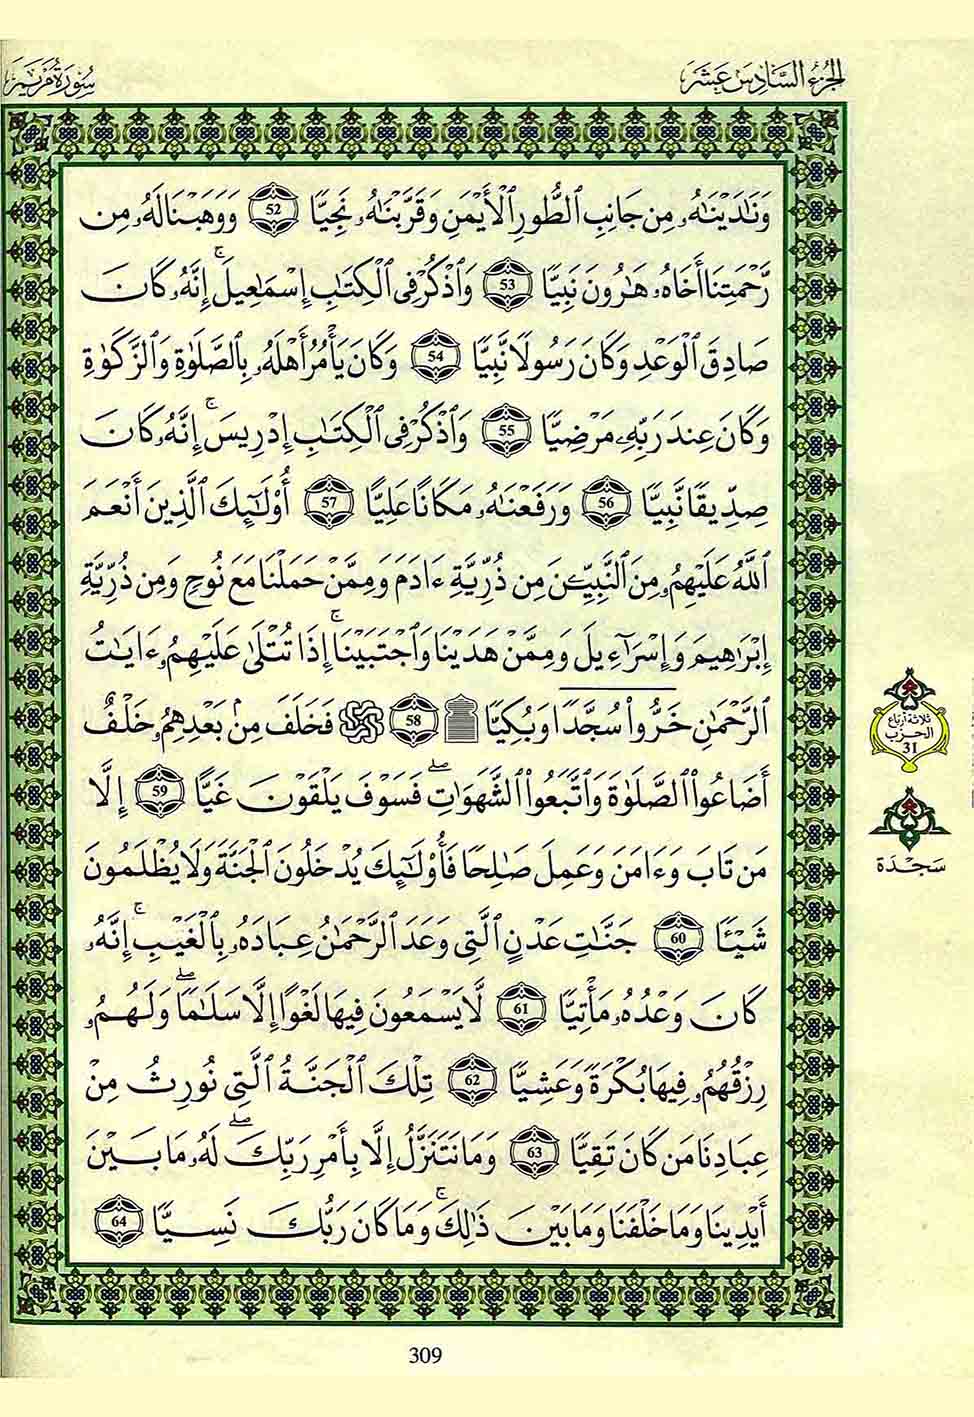 الجزء السادس عشر
سورة مريم
وَنَٰدَيْنَٰهُۥ مِن جَانِبِ ٱلطُّورِ ٱلْأَيْمَنِ وَقَرَّبْنَٰهُۥ نَجِيًّا 52 وَوَهَبْنَا لَهُۥ مِن
رَّحْمَتِنَا أَخَاهُۥ هَٰرُونَ نَبِيًّا 53 وَٱذْكُرْ فِى ٱلْكِتَٰبِ إِسْمَٰعِيلَ ۚ إِنَّهُۥ كَانَ
صَادِقَ ٱلْوَعْدِ وَكَانَ رَسُولًا نَّبِيًّا 54 وَكَانَ يَأْمُرُ أَهْلَهُۥ بِٱلصَّلَوٰةِ وَٱلزَّكَوٰةِ
وَكَانَ عِندَ رَبِّهِۦ مَرْضِيًّا 55 وَٱذْكُرْ فِى ٱلْكِتَٰبِ إِدْرِيسَ ۚ إِنَّهُۥ كَانَ
صِدِّيقًا نَّبِيًّا 56 وَرَفَعْنَٰهُۥ مَكَانًا عَلِيًّا 57 أُو۟لَٰٓئِكَ ٱلَّذِينَ أَنْعَمَ
ٱللَّهُ عَلَيْهِمُۥ مِنَ ٱلنَّبِيِّـۧنَ مِن ذُرِّيَّةِ ءَادَمَ وَمِمَّنْ حَمَلْنَا مَعَ نُوحٍ وَمِن ذُرِّيَّةِ
إِبْرَٰهِيمَ وَإِسْرَٰٓءِيلَ وَمِمَّنْ هَدَيْنَا وَٱجْتَبَيْنَا ۚ إِذَا تُتْلَىٰ عَلَيْهِمُۥ ءَايَٰتُ
ٱلرَّحْمَٰنِ خَرُّوا۟ سُجَّدًا وَبُكِيًّا ۩ 58 ۞ فَخَلَفَ مِنۢ بَعْدِهِمُۥ خَلْفٌ
أَضَاعُوا۟ ٱلصَّلَوٰةَ وَٱتَّبَعُوا۟ ٱلشَّهَوَٰتِ ۖ فَسَوْفَ يَلْقَوْنَ غَيًّا 59 إِلَّا
مَن تَابَ وَءَامَنَ وَعَمِلَ صَٰلِحًا فَأُو۟لَٰٓئِكَ يُدْخَلُونَ ٱلْجَنَّةَ وَلَا يُظْلَمُونَ
شَيْـًٔا 60 جَنَّٰتِ عَدْنٍ ٱلَّتِى وَعَدَ ٱلرَّحْمَٰنُ عِبَادَهُۥ بِٱلْغَيْبِ ۚ إِنَّهُۥ
كَانَ وَعْدُهُۥ مَأْتِيًّا 61 لَّا يَسْمَعُونَ فِيهَا لَغْوًا إِلَّا سَلَٰمًا ۖ وَلَهُمُۥ
رِزْقُهُمُۥ فِيهَا بُكْرَةً وَعَشِيًّا 62 تِلْكَ ٱلْجَنَّةُ ٱلَّتِى نُورِثُ مِنْ
عِبَادِنَا مَن كَانَ تَقِيًّا 63 وَمَا نَتَنَزَّلُ إِلَّا بِأَمْرِ رَبِّكَ ۖ لَهُۥ مَا بَيْنَ
أَيْدِينَا وَمَا خَلْفَنَا وَمَا بَيْنَ ذَٰلِكَ ۚ وَمَا كَانَ رَبُّكَ نَسِيًّا 64
ثلاثة أرباع
الحزب
31
سجدة
309